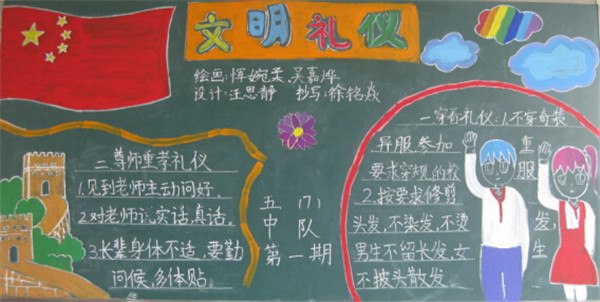 文明礼仪
绘画:恽婉柔、吴嘉烨
设计:汪思静 抄写:徐铭焱
一穿着礼仪:1.不穿奇装
异服参加 重
要求穿规的校 服
2.按要求修剪
头发,不染发,不烫 发,
男生不留长发,女 生
不披头散发
二尊师重孝礼仪
1.见到老师主动问好。
2.对老师讲实话,真话。
3.长辈身体不适,要勤
问候,多体贴
五(7)
中队
第一期